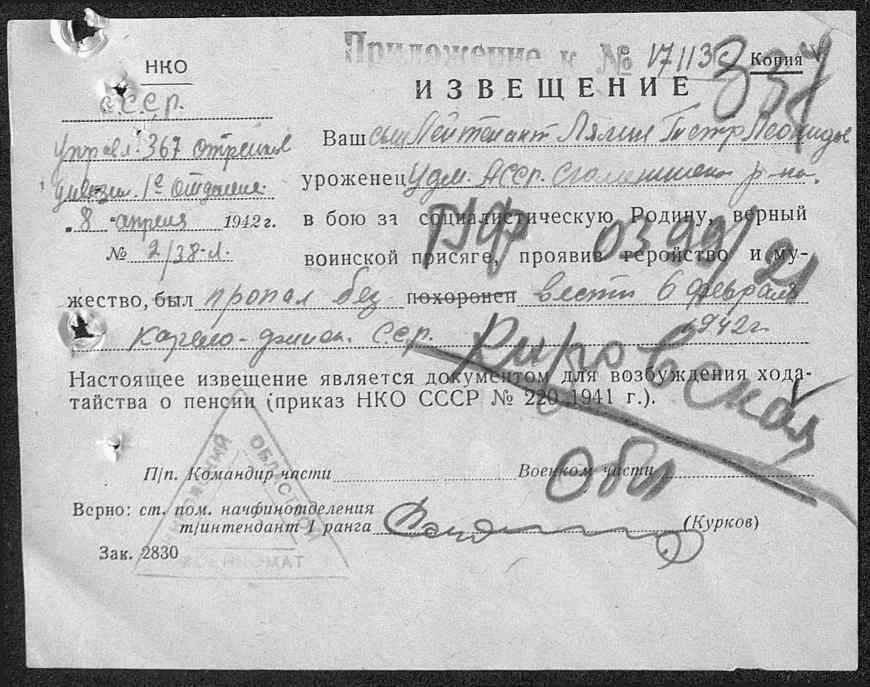 Приложение к № 17/113с 837
Копия
НКО
С.С.С.р.
ИЗВЕЩЕНИЕ
управл. 367 стрелков
дивизии. 1е отделение
8 апреля 1942 г.
№ 2/38-л.
Ваш сын Лейтенант Лялин Петр Леонидов
уроженец Удм. АССР.
в бою за социалистическую Родину, верный
воинской присяге, проявив геройство и му-
жество, был пропал без похоронен вести 6 февраля
1942г.
Карело-финск. С.С.р.
0399/21
Кировской
обл
Настоящее извещение является документом для возбуждения хода-
тайства о пенсии (приказ НКО СССР № 220 1941 г.).
П/п. Командир части Военком части
Верно: ст. пом. начфинотделения
т/интендант 1 ранга (Курков)
Зак. 2830
ОБЛАСТНОЙ